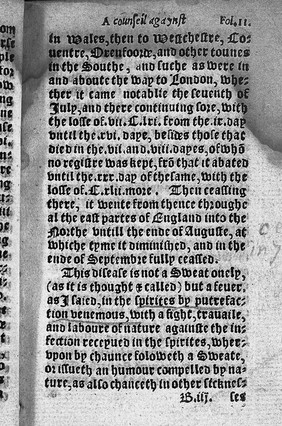 A counseil agaynst Fol.11.
in Wales, then to Westchestre, Co-
uentre, Drenfoorde, and other tounes
in the Southe, and suche as were in
and aboute the way to London, whe-
ther it came notablie the seuenth of
July, and there continuing sore, with
the losse of .vii.C.lxi. from the .ix. day
vntill the .xvi. daye, besides those that
died in the .vii. and .viii. dayes, of whō
no registre was kept, frō that it abated
vntill the .xxx. day of thesame, with the
losse of .C.xlii. more. Then ceassing
there, it wente from thence throughe
al the east partes of England into the
Northe vntill the ende of Auguste, at
whiche tyme it diminished, and in the
ende of Septembre fully ceassed.
This disease is not a Sweat onely,
(as it is thought & called) but a feuer,
as I saied, in the spirites by putrefac-
tion venemous, with a fight, trauaile,
and laboure of nature againste the in-
fection receyued in the spirites, wher-
vpon by chaunce foloweth a Sweate,
or issueth an humour compelled by na-
ture, as also chanceth in other sicknes-
B.iij. ses